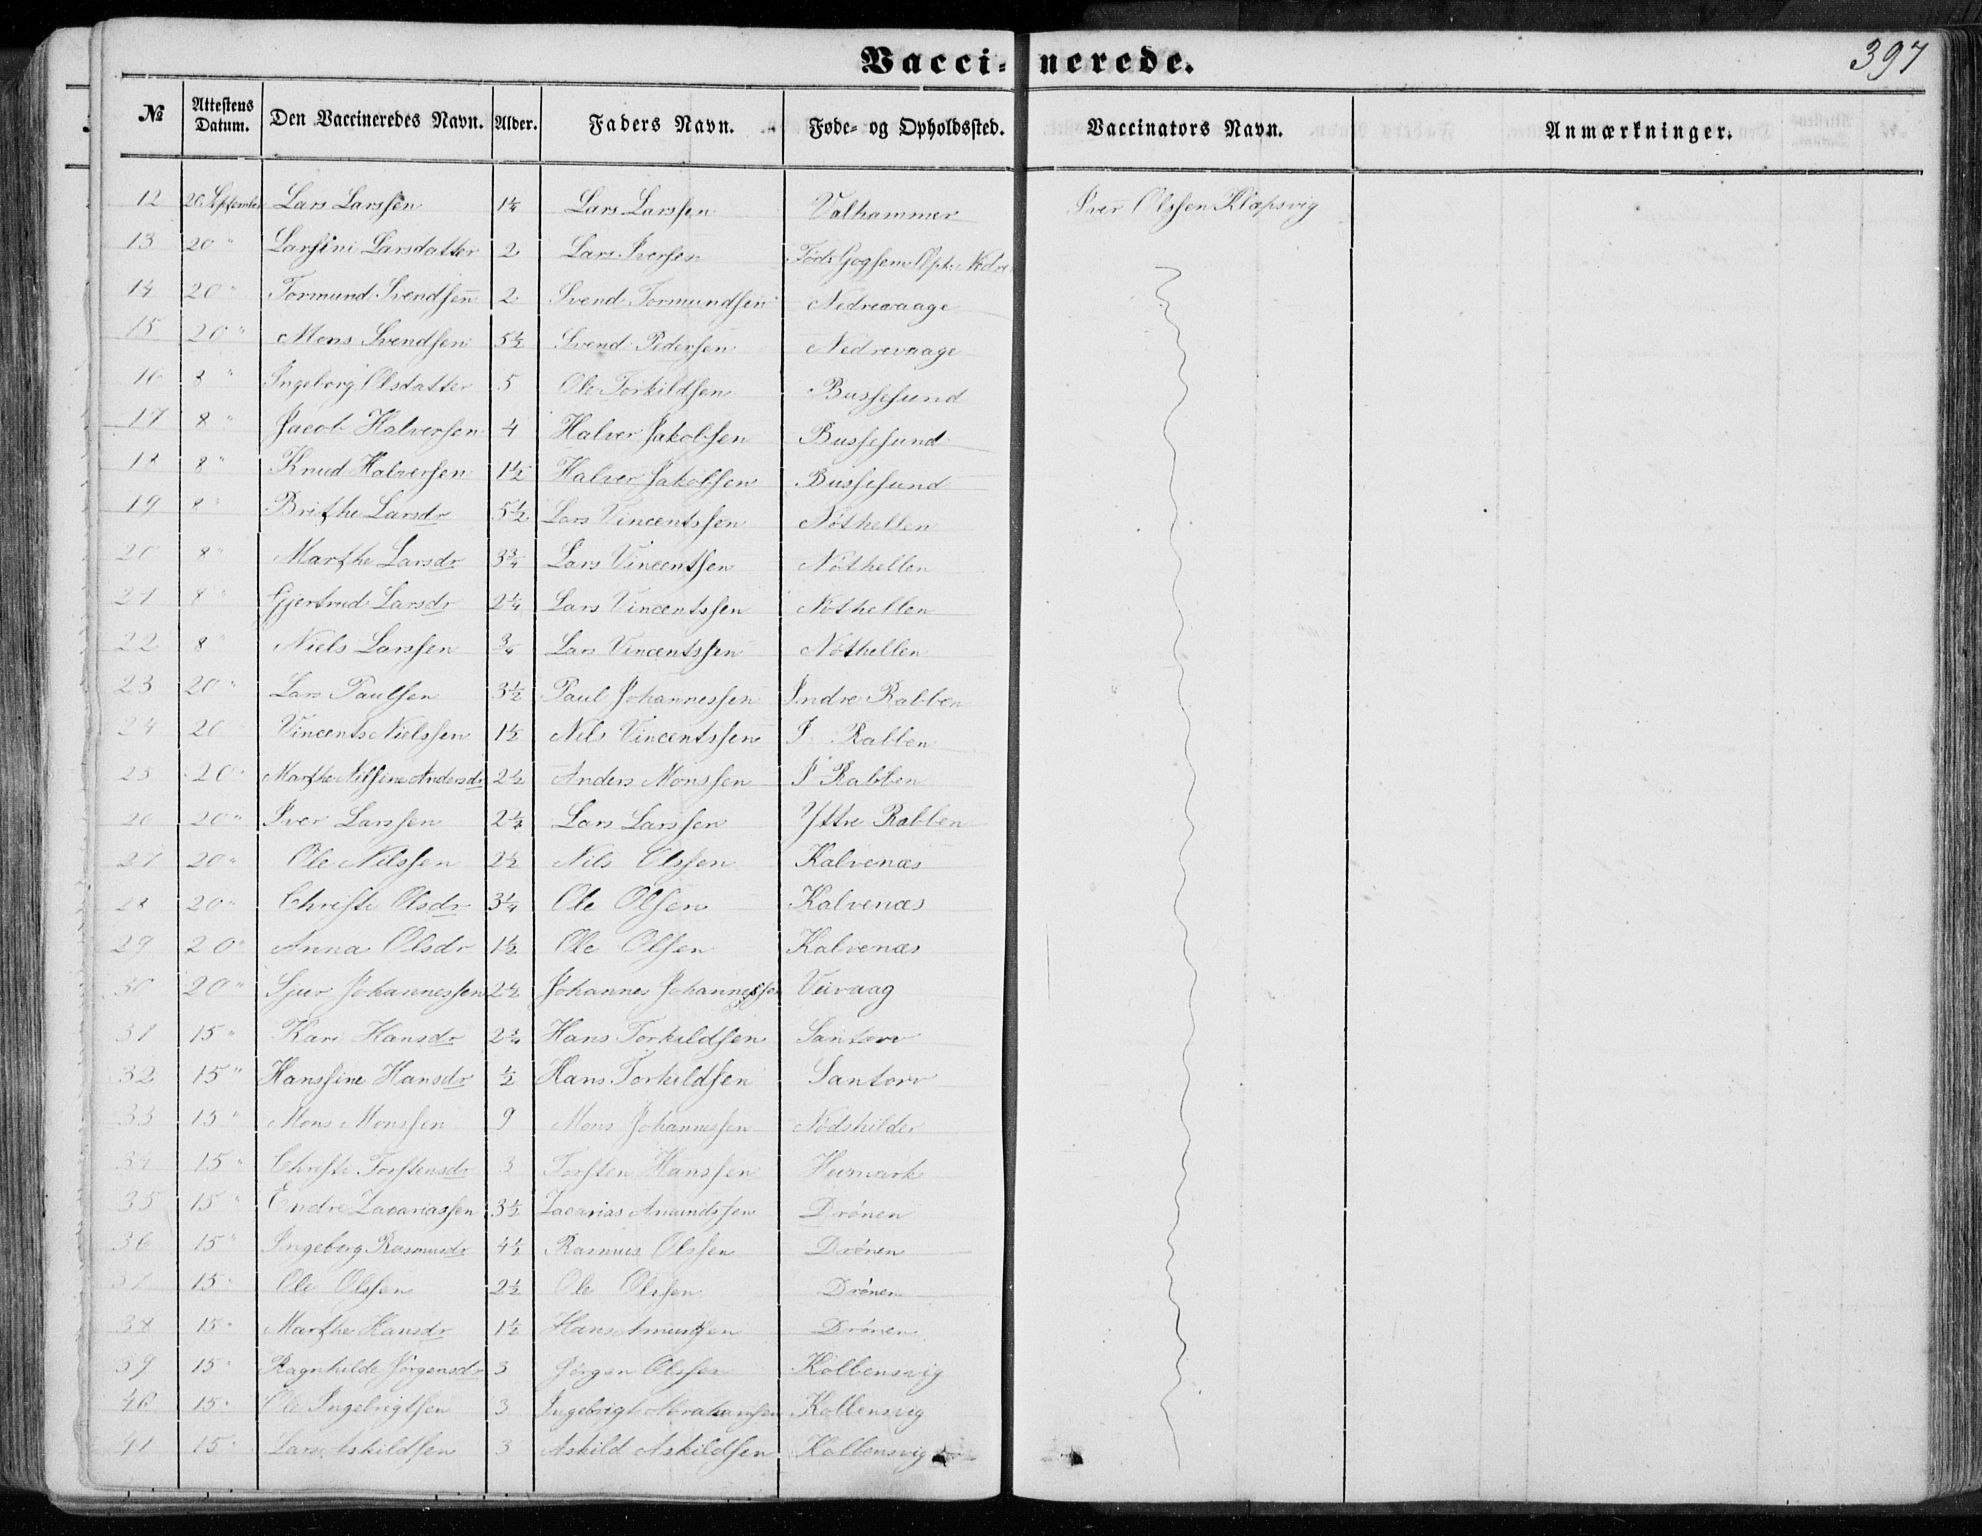 Vacci- nerede. 397
№ Attestens Datum. Den Vaccineredes Navn. Alder. Faders Navn. Føde- og Opholdssted. Vaccinators Navn. Anmærkninger.
12 20 September Lars Larssen 1¼ Lars Larssen Valhammer Iver Olssen Klæpsvig
13 20 " Larsine Larsdatter 2 Lars Iversen Född Gogsem Oph. Nedre
14 20 " Tormund Svendsen 2 Svend Tormundsen Nedrevaage
15 20 " Mons Svendsen 5½ Svend Pedersen Nedrevaage
16 8 " Ingeborg Olsdatter 5 Ole Torkildsen Bussesund
17 8 " Jacob Halversen 4 Halver Jakobsen Bussesund
18 8 " Knud Halversen 1½ Halver Jakobsen Bussesund
19 8 " Brithe Larsdr 5½ Lars Vincentssen Nøthellen
20 8 " Marthe Larsdr 3¾ Lars Vincentsen Nøthellen
21 8 " Gjertrud Larsdr 2¼ Lars Vincentssen Nøthellen
22 8 " Niels Larssen ¾ Lars Vincentssen Nøthellen
23 20 " Lars Paulsen 3½ Paul Johannessen Indre Rabben
24 20 Vincents Nielssen 1½ Nils Vincentssen I Rabben
25 20 " Marthe Nilsine Andersdr 2½ Anders Monssen I Rabben
26 20 " Iver Larssen Lars Larssen Yttre Rabben
27 20 " Ole Nilssen 2½ Nils Olssen Kalvenæs
28 20 " Christi Olsdr 3¼ Ole Olsen Kalvenæs
29 20 " Anna Olsdr 1½ Ole Olsen Kalvenæs
30 20 " Sjur Johannessen 2½ Johannes Johannessen Viivaag
31 15 " Kari Hansdr 2¾ Hans Torkildsen Santorv
32 15 " Hanssine Hansdr ½ Hans Torkildsen Santorv
33 15 " Mons Monssen 9 Mons Johannessen Nødshilder
34 15 " Christi Torstensdr 3 Torsten Hanssen Heimark
35 15 " Endre Zacariassen 3½ Zacarias Amundssen Drönen
36 15 " Ingeborg Rasmusdr 4½ Rasmus Olssen Drönen
37 15 " Ole Olssen 2½ Ole Olssen Drönen
38 15 " Marthe Hansdr 1½ Hans Amundsen Drönen
39 15 " Ragnhilde Jørgensdr 3 Jørgen Olssen Kolbensvig
40 15 " Ole Ingebrigtsen 3 Ingebrigt Abrahamsen Kolbensvig
41 15 " Lars Askildsen 3 Askild Askildsen Kolbensvig